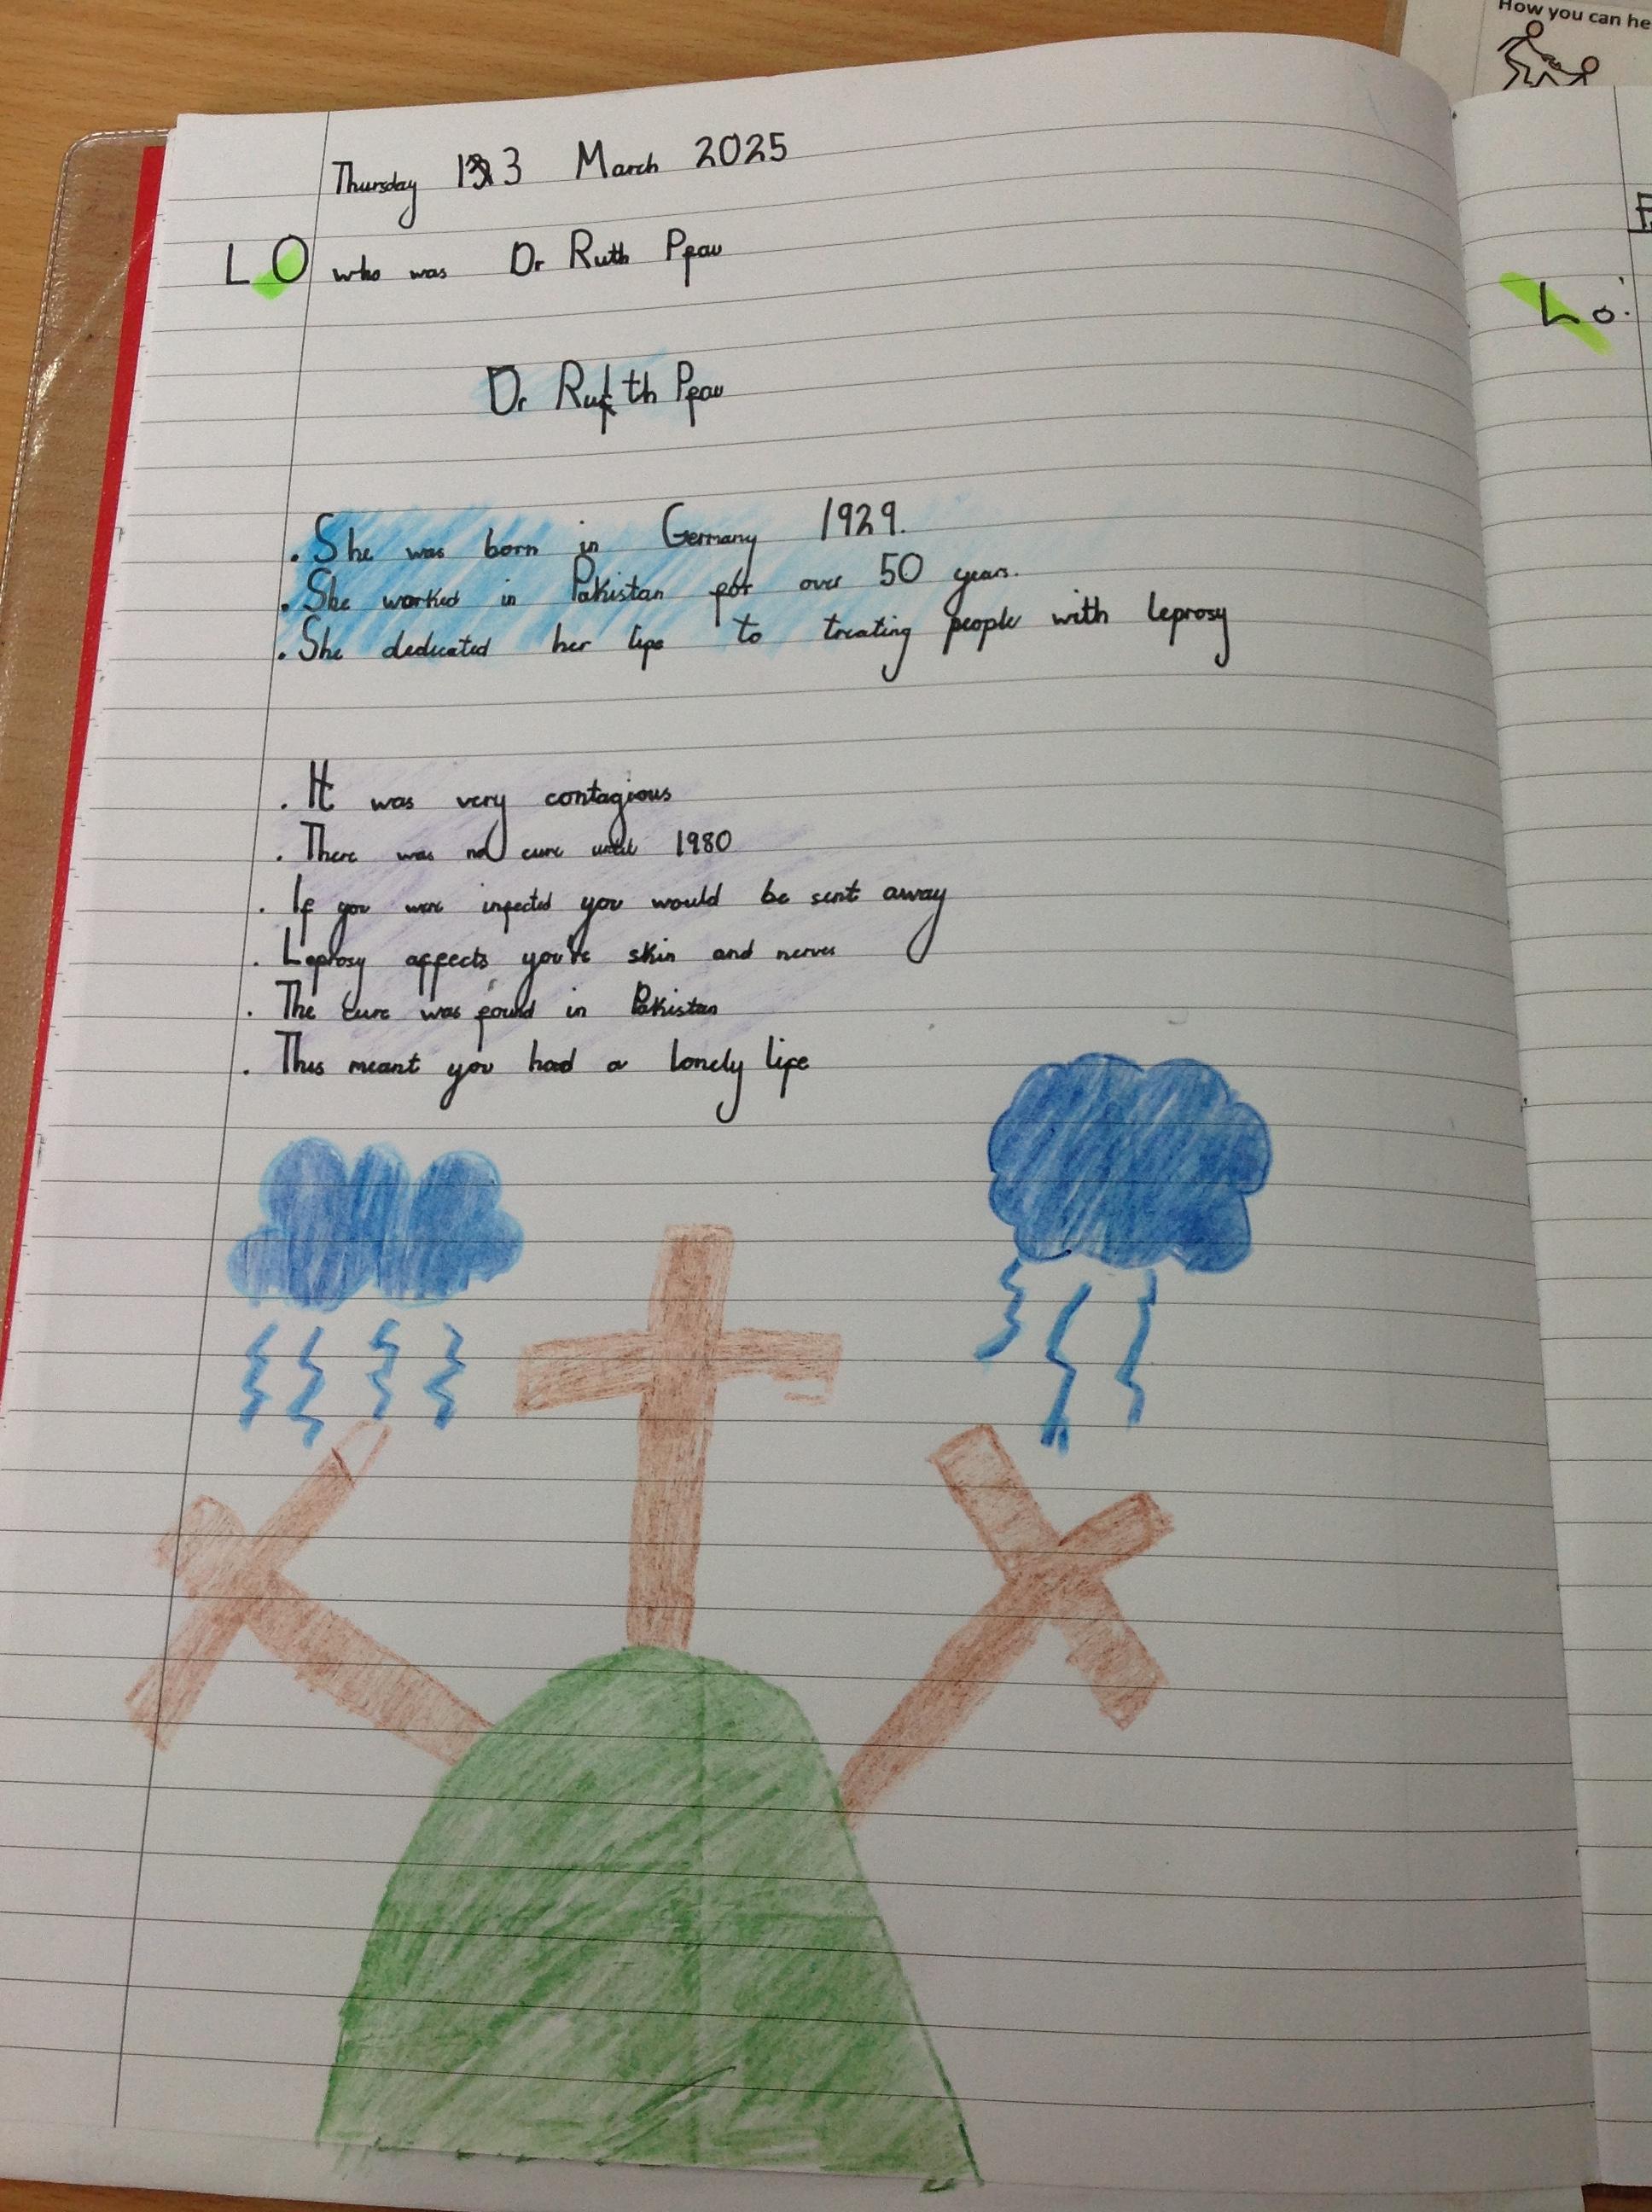 How you can he
Thursday 13 March 2025
LO who was Dr Ruth Pfau
Dr Ruth Pfau
. She was born in Germany 1929.
. She worked in Pakistan for over 50 years.
. She dedicated her life to treating people with leprosy
. It was very contagious
. There was no cure until 1980
. If you were infected you would be sent away
. Leprosy affects you're skin and nerves
. The cure was found in Pakistan
. This meant you had a lonely life
Lo: